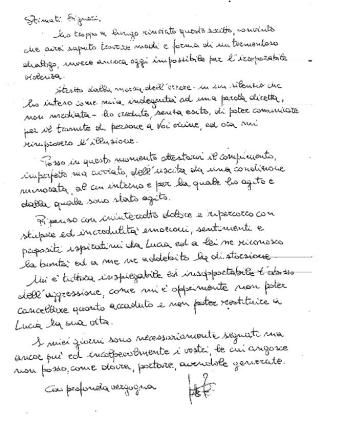 Stimati Signori,
ho troppo a lungo rinviato questo scritto, convinto
che avrei saputo trovare modi e forma di un tormentoso
dialogo, invece ancora oggi impossibile per l'incorporabile
violenza.
Stretto dalla morsa dell'errore - in un silenzio che
ho inteso come mia indegnità ad una parola diretta,
non mediata - ho creduto, senza esito, di poter comunicare
per il tramite di persone a voi vicine, ed ora mi
rimprovero l'illusione.
Posso in questo momento attestarvi il compimento,
imperfetto ma avviato, dell'uscita da una condizione
al cui interno e per la quale ho agito e
dalla quale sono stato agito.
Ripenso con ininterrotto dolore e ripercorro con
stupore ed incredulità emozioni, sentimenti e
propositi ispiratimi da Lucia ed a lei ne riconosco
la bontà ed a me ne addebito la distorsione.
Mi è tuttora inspiegabile ed insopportabile l'abisso
dell'aggressione, come mi è opprimente non poter
cancellare quanto accaduto e non poter restituire a
Lucia la sua vita.
I miei giorni sono necessariamente segnati ma
ancor più ed incolpevolmente i vostri, le cui angosce
non posso, come dovrei, portare, avendole generate.
Con profonda vergogna